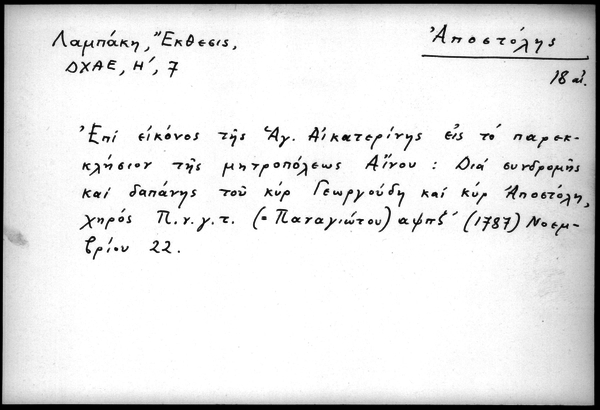 Λαμπάκη, Ἔκθεσις,
ΔΧΑΕ, Η', 7
Ἀποστόλης
18 αἰ.
Ἐπί εἰκόνος τῆς Ἁγ. Αἰκατερίνης εἰς τό παρεκ-
κλήσιον τῆς μητροπόλεως Αἴνου : Διά συνδρομῆς
καί δαπάνης τοῦ κύρ Γεωργούδη καί κύρ Ἀποστόλη,
χηρός Π.ν.γ.τ. (= Παναγιώτου) αψπζ' (1787) Νοεμ-
βρίου 22.